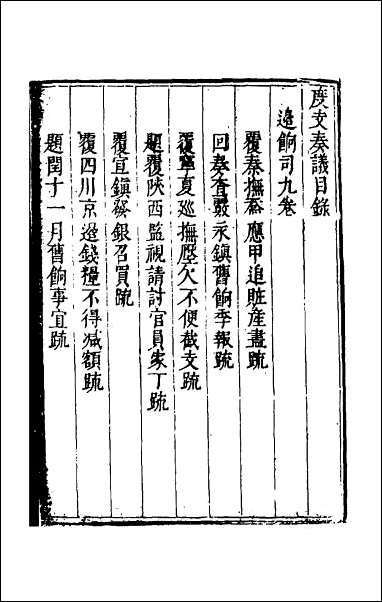 度支奏議目錄
邊餉司九卷
覆秦撫裕應甲追賍產盡疏
回奏查覈永鎮舊餉季報疏
覆寧夏巡撫壓欠不便截支疏
題覆陝西監視請討官員家丁疏
覆宣鎮發銀召買疏
覆四川京邊錢糧不得減額疏
題閏十一月舊餉事宜疏